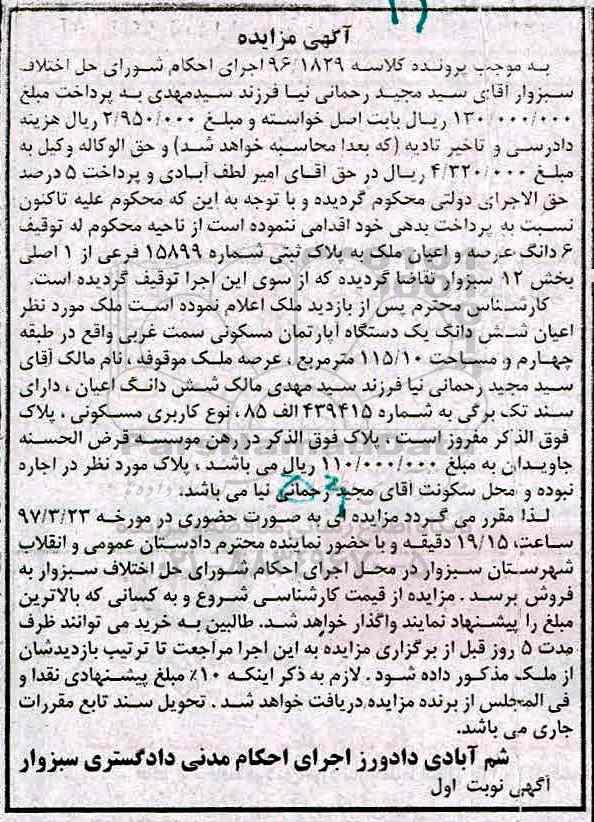 آگهی مزایده
به موجب پرونده کلاسه ۹۶/۱۸۲۹ اجرای احکام شورای حل اختلاف
سبزوار آقای سید مجید رحمانی نیا فرزند سیدمهدی به پرداخت مبلغ
۱۳۰/۰۰۰/۰۰۰ ریال بابت اصل خواسته و مبلغ ۲/۹۵۰/۰۰۰ ریال هزینه
دادرسی و تاخیر تادیه (که بعدا محاسبه خواهد شد) و حق الوکاله وکیل به
مبلغ ۴/۳۲۰/۰۰۰ ریال در حق اقای امیر لطف آبادی و پرداخت ۵ درصد
حق الاجرای دولتی محکوم گردیده و با توجه به این که محکوم علیه تاکنون
نسبت به پرداخت بدهی خود اقدامی ننموده است از ناحیه محکوم له توقیف
۶ دانگ عرصه و اعیان ملک به پلاک ثبتی شماره ۱۵۸۹۹ فرعی از ۱ اصلی
بخش ۱۲ سبزوار تقاضا گردیده که از سوی این اجرا توقیف گردیده است.
کارشناس محترم پس از بازدید ملک اعلام نموده است ملک مورد نظر
اعیان شش دانگ یک دستگاه آپارتمان مسکونی سمت غربی واقع در طبقه
چهارم و مساحت ۱۱۵/۱۰ مترمربع ، عرصه ملک موقوفه ، نام مالک آقای
سید مجید رحمانی نیا فرزند سید مهدی مالک شش دانگ اعیان ، دارای
سند تک برگی به شماره ۴۳۹۴۱۵ الف ۸۵ ، نوع کاربری مسکونی ، پلاک
فوق الذکر مفروز است ، پلاک فوق الذکر در رهن موسسه قرض الحسنه
جاویدان به مبلغ ۱۱۰/۰۰۰/۰۰۰ ریال می باشد ، پلاک مورد نظر در اجاره
نبوده و محل سکونت اقای مجید رحمانی نیا می باشد.
لذا مقرر می گردد مزایده ای به صورت حضوری در مورخه ۹۷/۳/۲۳
ساعت ۱۹/۱۵ دقیقه و با حضور نماینده محترم دادستان عمومی و انقلاب
شهرستان سبزوار در محل اجرای احکام شورای حل اختلاف سبزوار به
فروش برسد . مزایده از قیمت کارشناسی شروع و به کسانی که بالاترین
مبلغ را پیشنهاد نمایند واگذار خواهد شد. طالبین به خرید می توانند ظرف
مدت ۵ روز قبل از برگزاری مزایده به این اجرا مراجعت تا ترتیب بازدیدشان
از ملک مذکور داده شود . لازم به ذکر اینکه ۱۰٪ مبلغ پیشنهادی نقدا و
فی المجلس از برنده مزایده دریافت خواهد شد . تحویل سند تابع مقررات
جاری می باشد.
شم آبادی دادورز اجرای احکام مدنی دادگستری سبزوار
آگهی نوبت اول